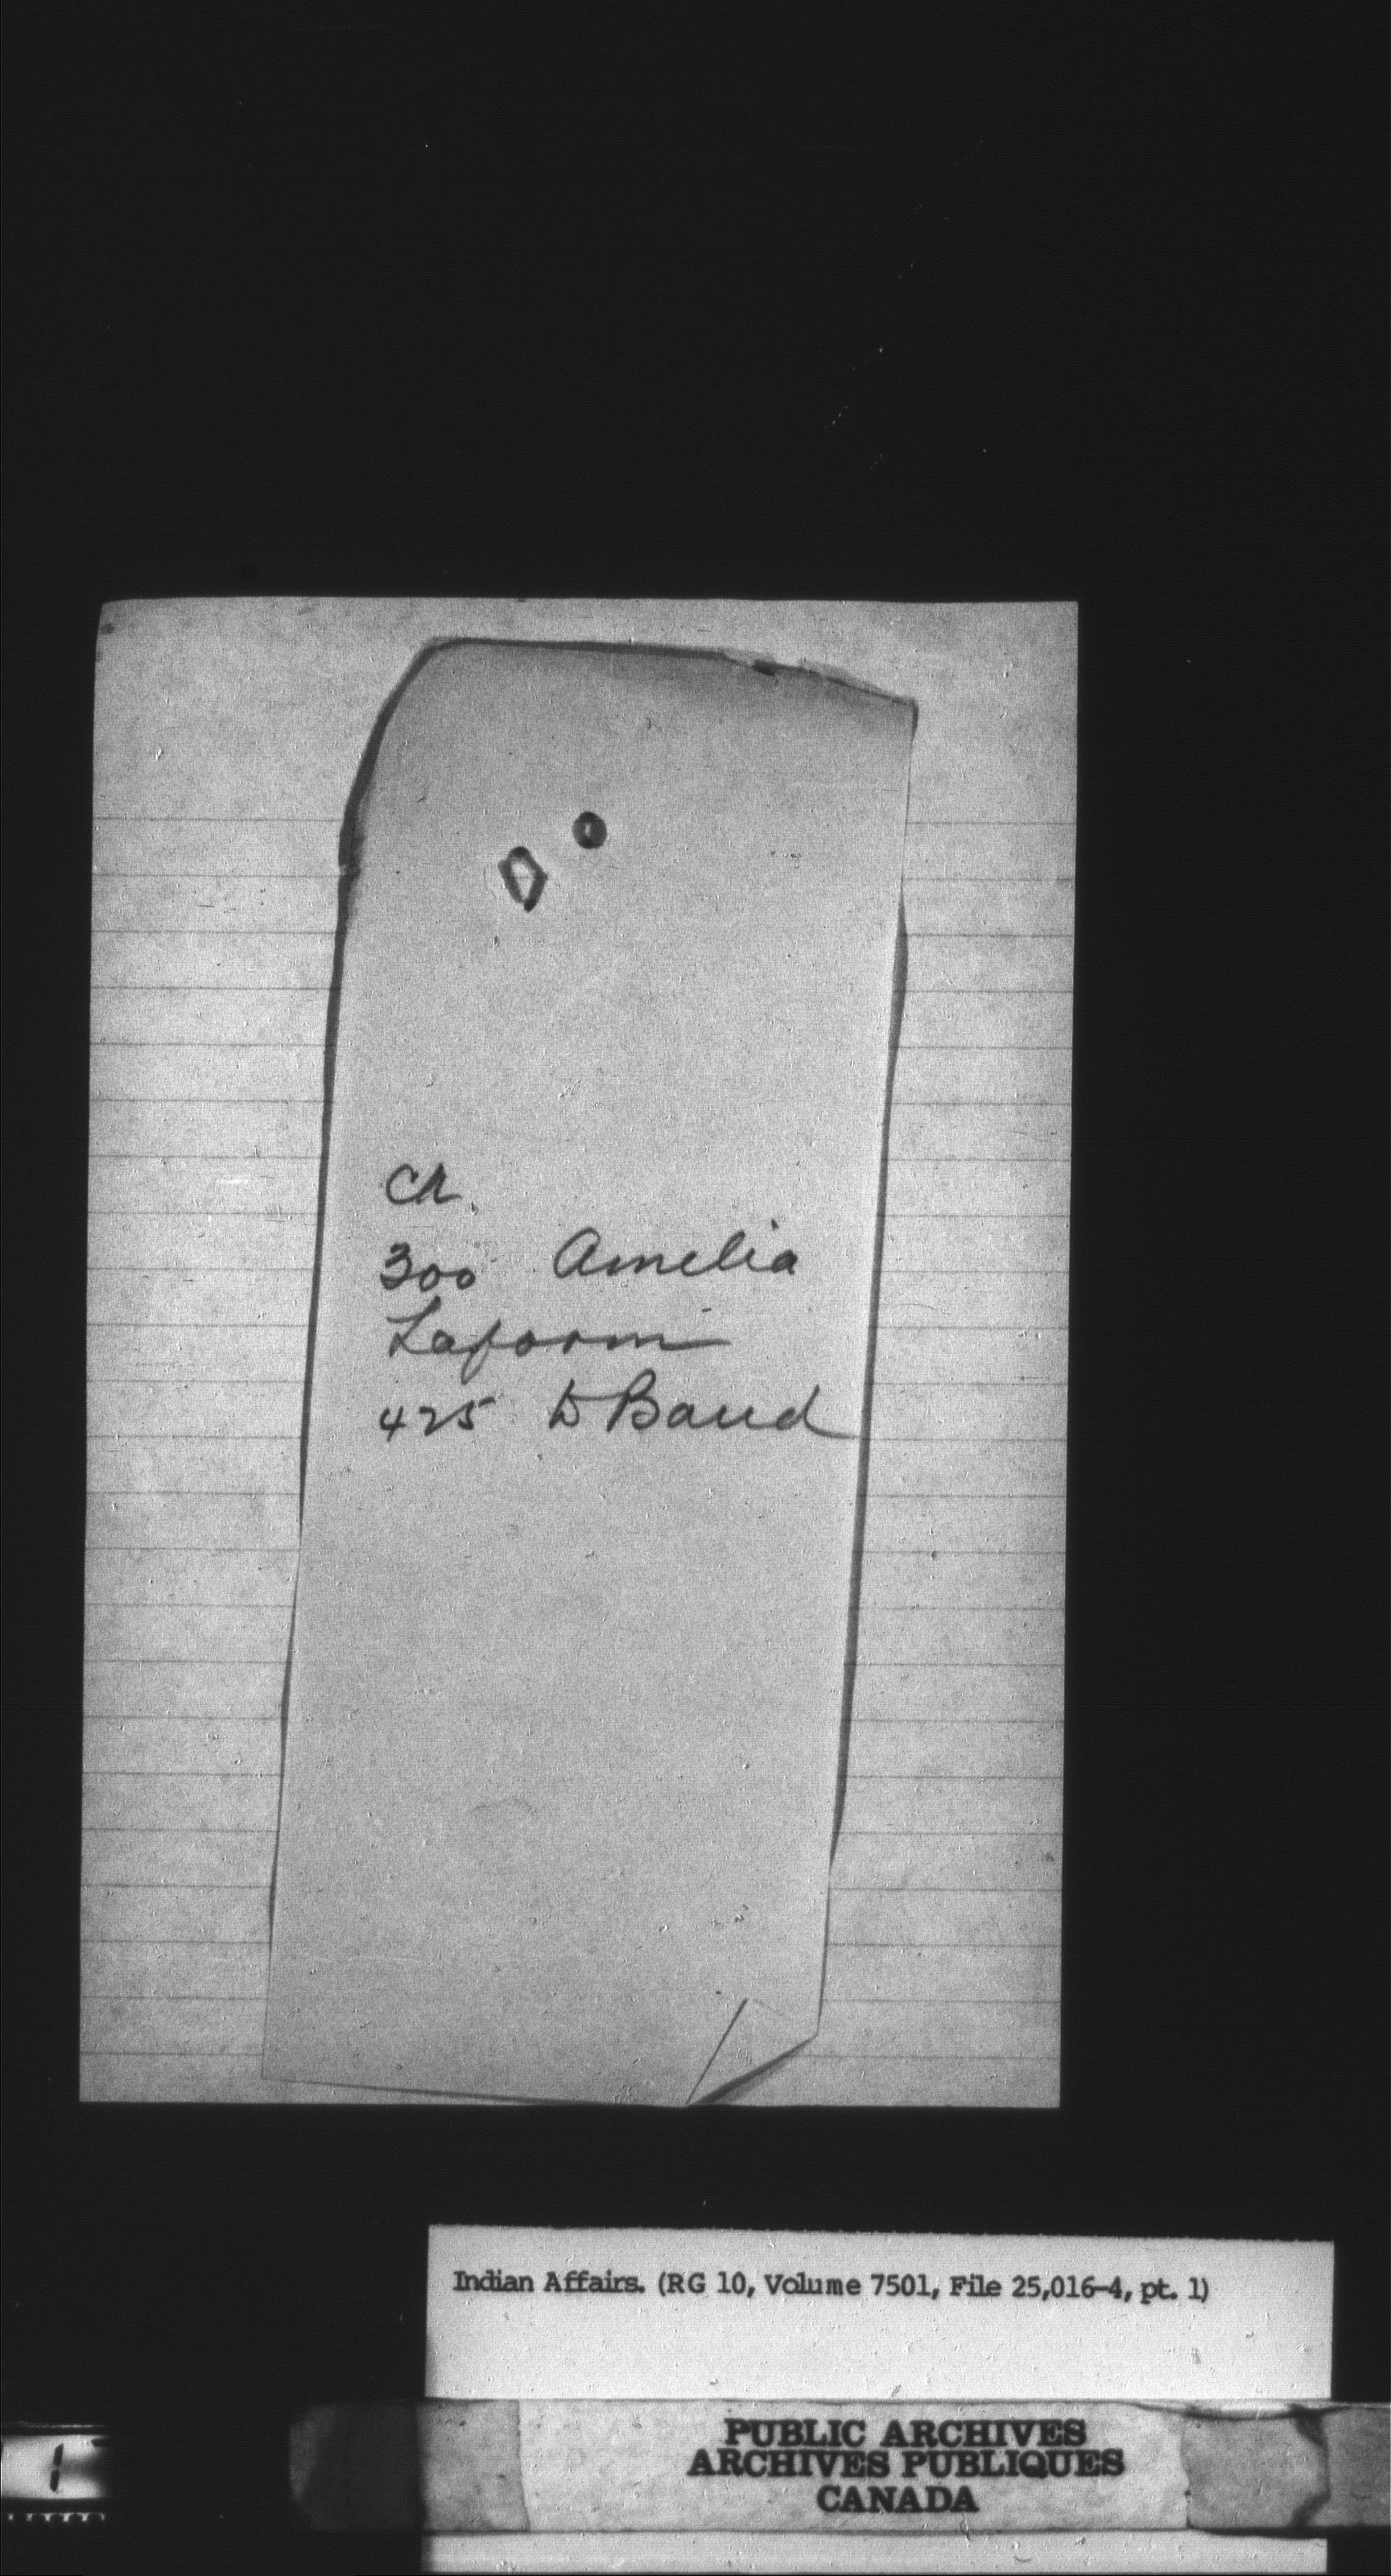 Cr.
300 Amelia
Laform
425 to Band
Indian Affairs. (RG 10, Volume 7501, File 25,016-4, pt. 1)
PUBLIC ARCHIVES
ARCHIVES PUBLIQUES
CANADA